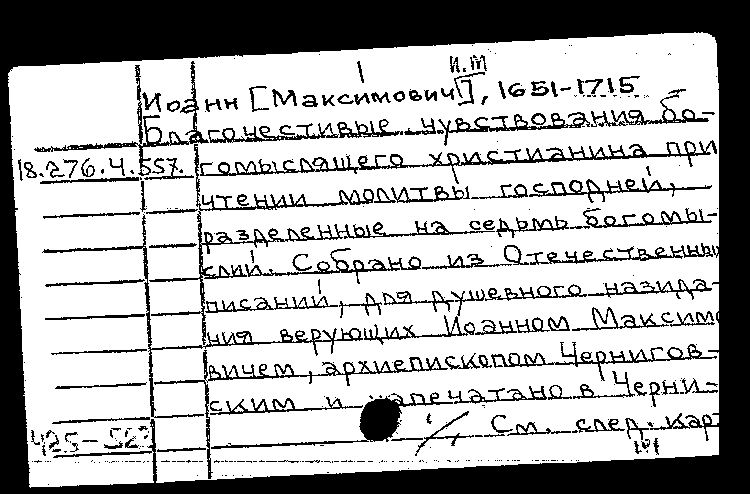 И.М
Иоанн [Максимович], 1651-1715
Благочестивые чувствования бо-
18.276.4.557. гомыслящего христианина при
чтении молитвы господней,
разделенные на седьмь богомы-
слий. Собрано из Отечественных
писаний, для душевного назида-
ния верующих Иоанном Максимо
вичем, архиепископом Чернигов-
ским и напечатано в Черни-
См. след. карт